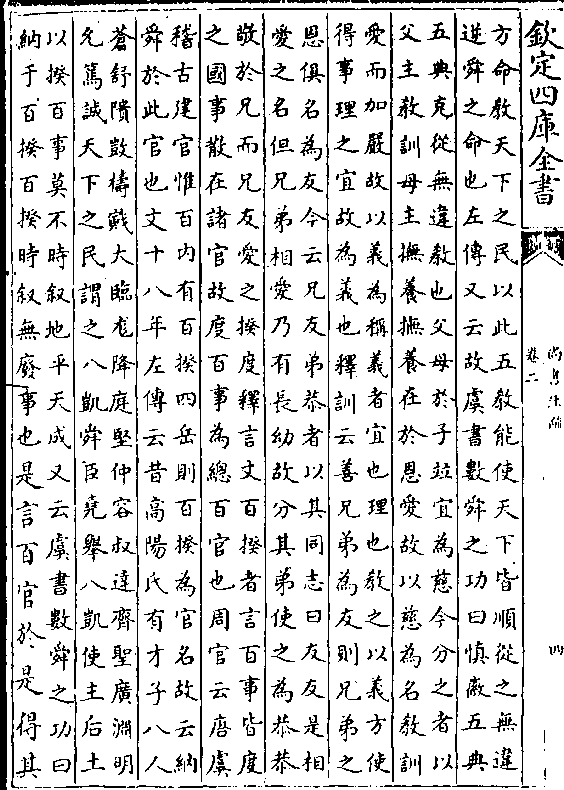 欽定四庫全書
尚書注疏
卷二
四
方命教天下之民以此五教能使天下皆順從之無違
逆舜之命也左傳又云故虞書數舜之功曰慎厥五典
五典克從無違教也父母於子竝宜為慈今分之者以
父主教訓母主撫養撫養在於恩愛故以慈為名教訓
愛而加嚴故以義為稱義者宜也理也教之以義方使
得事理之宜故為義也釋訓云善兄弟為友則兄弟之
恩俱名為友今云兄友弟恭者以其同志曰友友是相
愛之名但兄弟相愛乃有長幼故分其弟使之為恭恭
敬於兄而兄友愛之揆度釋言文百揆者言百事皆度
之國事散在諸官故度百事為總百官也周官云唐虞
稽古建官惟百内有百揆四岳則百揆為官名故云納
舜於此官也文十八年左傳云昔高陽氏有才子八人
蒼舒隤敳檮戭大臨尨降庭堅仲容叔達齊聖廣淵明
允篤誠天下之民謂之八凱舜臣堯舉八凱使主后土
以揆百事莫不時叙地平天成又云虞書數舜之功曰
納于百揆百揆時叙無廢事也是言百官於是得其